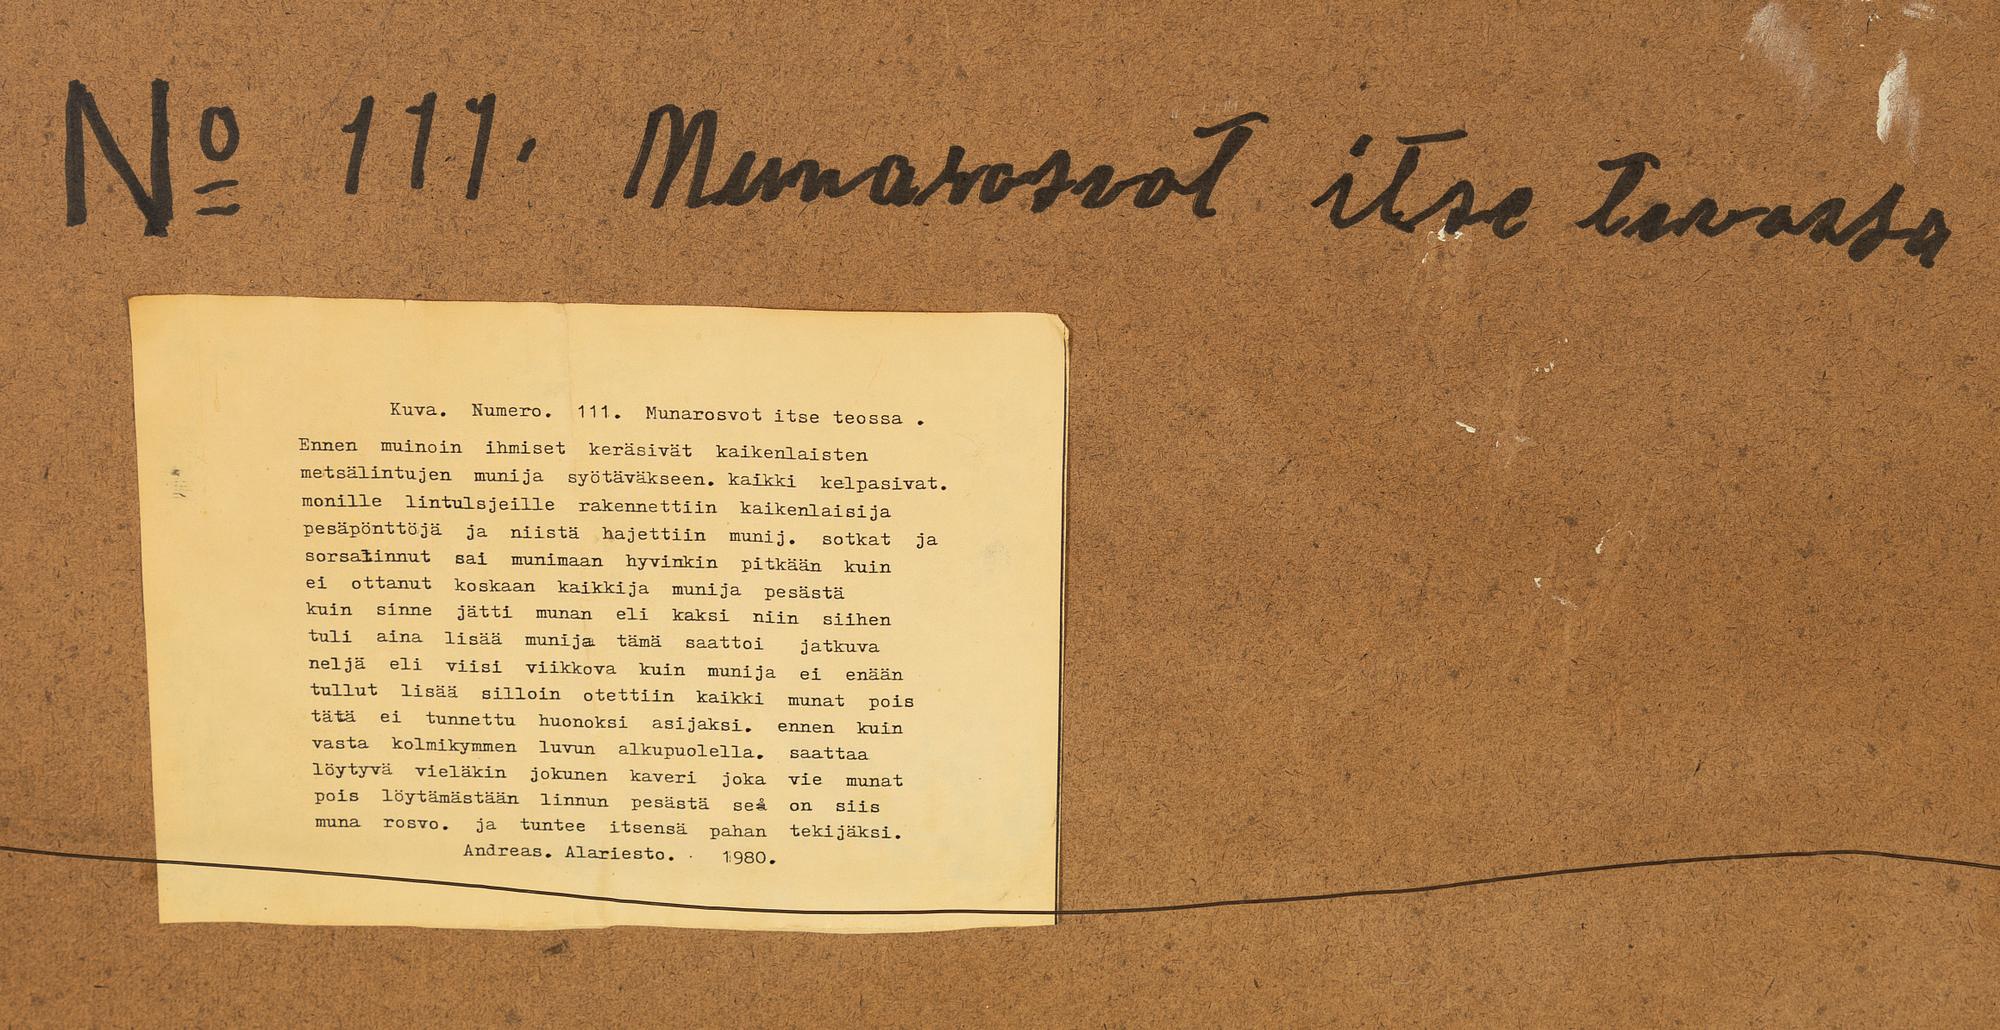 Nº 111. Munarosvot itse
Kuva. Numero. 111. Munarosvot itse teossa .
Ennen muinoin ihmiset keräsivät kaikenlaisten
metsälintujen munija syötäväkseen. kaikki kelpasivat.
monille lintulsjeille rakennettiin kaikenlaisija
pesäpönttöjä ja niistä hajettiin munij. sotkat ja
sorsalinnut sai munimaan hyvinkin pitkään kuin
ei ottanut koskaan kaikkija munija pesästä
kuin sinne jätti munan eli kaksi niin siihen
tuli aina lisää munija tämä saattoi jatkuva
neljä eli viisi viikkova kuin munija ei enään
tullut lisää silloin otettiin kaikki munat pois
tätä ei tunnettu huonoksi asijaksi. ennen kuin
vasta kolmikymmen luvun alkupuolella. saattaa
löytyvä vieläkin jokunen kaveri joka vie munat
pois löytämästään linnun pesästä se on siis
muna rosvo. ja tuntee itsensä pahan tekijäksi.
Andreas. Alariesto. 1980.